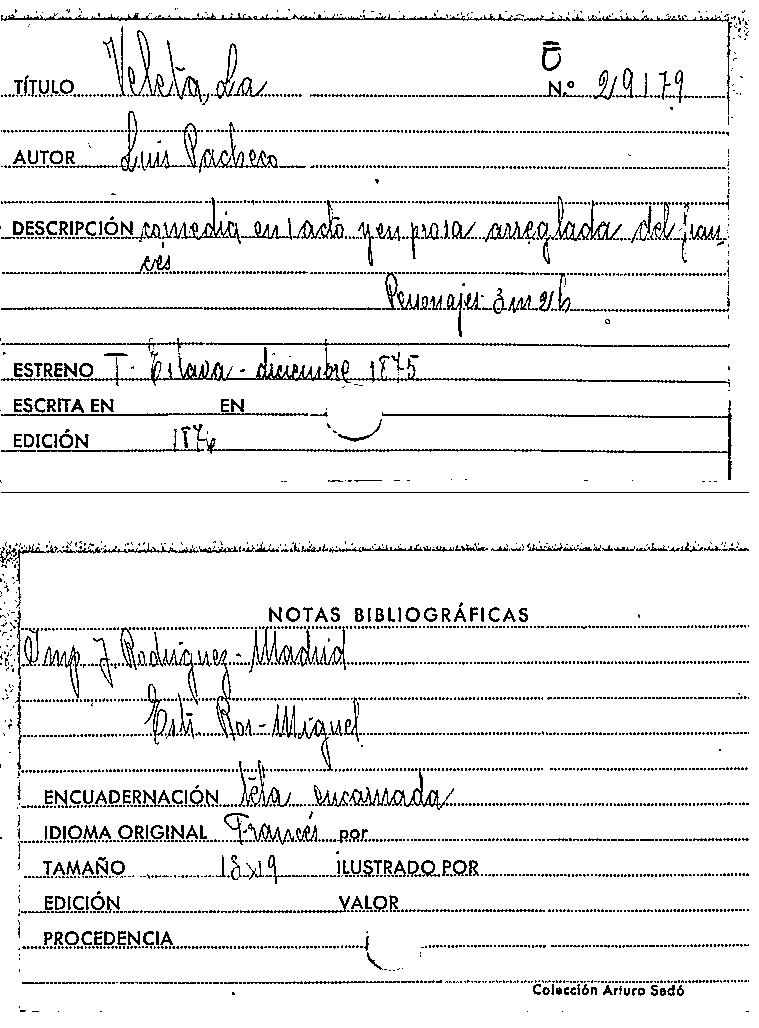 TÍTULO Veleta, La N.º 29179
AUTOR Luis Pacheco
DESCRIPCIÓN comedia en 1 acto y en prosa arreglada del fran-
cés
Personajes 3m 2h
ESTRENO T. Eslava - diciembre 1875
ESCRITA EN EN
EDICIÓN 1876
NOTAS BIBLIOGRÁFICAS
Imp J. Rodriguez - Madrid
Ros - Miguel
ENCUADERNACIÓN tela encarnada
IDIOMA ORIGINAL Francés por
TAMAÑO 13x19 ILUSTRADO POR
EDICIÓN VALOR
PROCEDENCIA
Colección Arturo Sedó